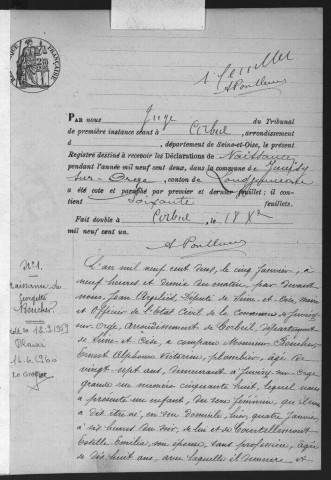 1er feuillet
A Ponlleux
Par nous Juge du Tribunal
de première instance séant à Corbeil, arrondissement
d , département de Seine-et-Oise, le présent
Registre destiné à recevoir les Déclarations de Naissance
pendant l'année mil neuf cent deux, dans la commune de Juvisy
sur-Orge, canton de Longjumeau
a été coté et paraphé par premier et dernier feuillet; il con-
tient Soixante feuillets.
Fait double à Corbeil, le 18 Xbre
mil neuf cent un.
N° 1.
Naissance de
Georgette
Boucher
L'an mil neuf cent deux, le cinq Janvier, à
neuf heures et demie du matin, par devant
nous, Jean Argeliès, Député de Seine et Oise, maire
et Officier de l'Etat Civil de la Commune de Juvisy
sur-Orge, arrondissement de Corbeil, département
de Seine-et-Oise, a comparu Monsieur Boucher
Ernest Alphonse Victorin, plombier, âgé de
vingt-sept ans, demeurant à Juvisy-sur-Orge
grande rue numéro cinquante huit, lequel nous
a présenté un enfant, du sexe féminin, qu'il nous
a dit être né, en son domicile, hier, quatre Janvier,
à six heures du soir, de lui et de
Estelle Emilia, son épouse, sans profession, âgée
de dix huit ans, avec laquelle il demeure et